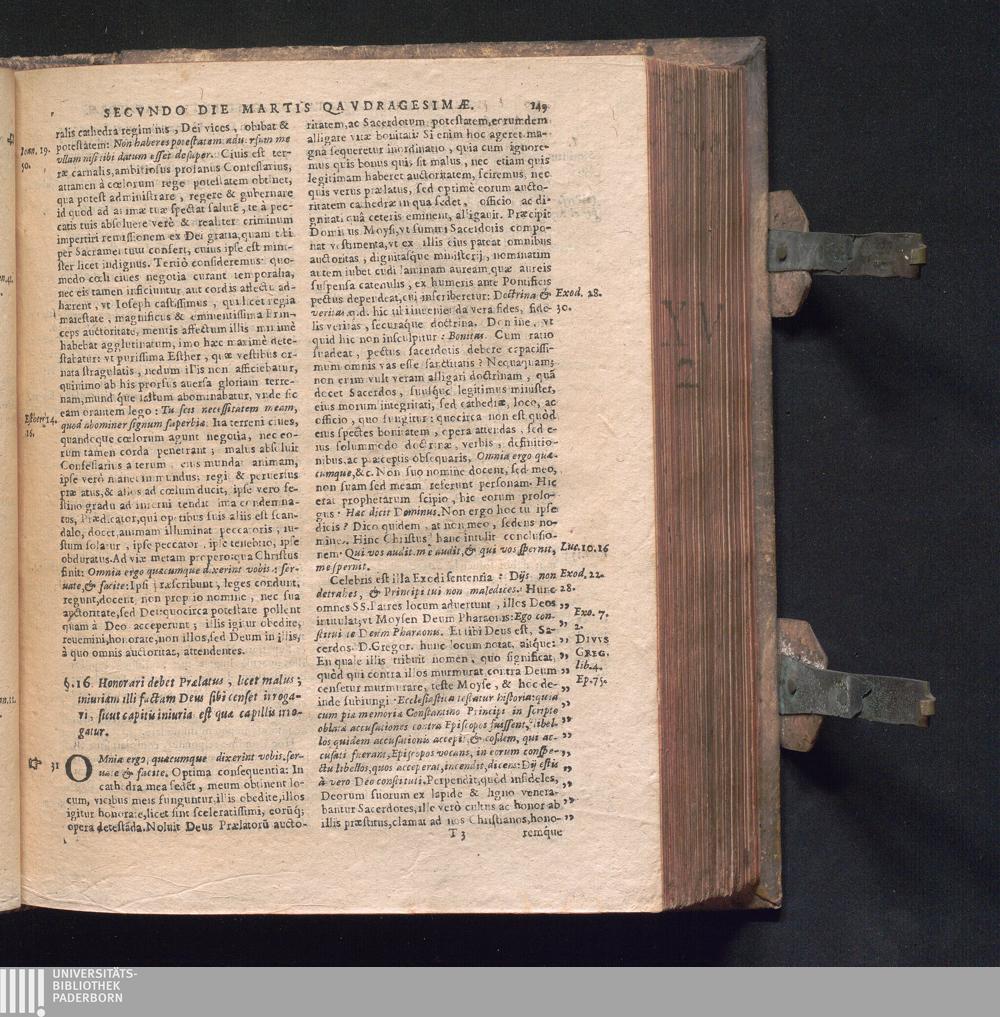 SECVNDO DIE MARTIS QAVDRAGESIMÆ. 149
ralis cathedra regiminis, Dei vices, obibat &
potestatem: Non haberes potestatem aduersum me
vllam nisi tibi datum esset desuper. Ciuis est ter-
ræ carnalis, ambitiosus profanus Confessarius,
attamen à cœlorum rege potestatem obtinet,
qua potest administrare, regere & gubernare
id quod ad animæ tuæ spectat salutē, te à pec-
catis tuis absoluere verè & realiter criminum
impertiri remissionem ex Dei gratia, quam tibi
per Sacramentum confert, cuius ipse est mini-
ster licet indignus. Tertiò consideremus: quo-
modo cœli ciues negotia curant temporalia,
nec eis tamen inficiuntur aut cordis affectu ad-
hærent, vt Ioseph castissimus, qui licet regia
maiestate, magnificus & eminentissima Prin-
ceps auctoritate, mentis affectum illis minimè
habebat agglutinatum, imo hæc maximè dete-
stabatur: vt purissima Esther, quæ vestibus or-
nata stragulatis, nedum illis non afficiebatur,
quinimo ab his prorsus auersa gloriam terre-
nam, mundique fastum abominabatur, vnde sic
eam orantem lego: Tu scis necessitatem meam,
quod abominer signum superbiæ. Ita terreni ciues,
quandoque cœlorum agunt negotia, nec eo-
rum tamen corda penetrant; malus absoluit
Confessarius alterum, eius mundat animam,
ipse verò manet immundus; regit & peruersus
prælatus, & alios ad cœlum ducit, ipse vero fe-
stino gradu ad inferni tendit ima condemna-
tus, Prædicator, qui operibus suis aliis est scan-
dalo, docet, animam illuminat peccatoris, iu-
stum solatur, ipse peccator, ipse tenebrio, ipse
obduratus. Ad viæ metam propero: qua Christus
finit: Omnia ergo quæcumque dixerint vobis: ser-
uate, & facite: Ipsi præscribunt, leges condunt,
regunt, docent, non proprio nomine, nec sua
auctoritate, sed Dei: quocirca potestate pollent
quam à Deo acceperunt; illis igitur obedite,
reuemini, honorate, non illos, sed Deum in illis,
à quo omnis auctoritas, attendentes.
§. 16. Honorari debet Prælatus, licet malus;
iniuriam illi factam Deus sibi censet irroga-
ri, sicut capitis iniuria est quæ capillis irro-
gatur.
31 OMnia ergo, quæcumque dixerint vobis, ser-
uate & facite. Optima consequentia: In
cathedra mea sedet, meum obtinent lo-
cum, vicibus meis funguntur, illis obedite, illos
igitur honorate, licet sint sceleratissimi, eorūq;
opera detestāda. Noluit Deus Prælatorū aucto-
Ioan. 19.
30.
Esther 14.
16.
ritatem, ac Sacerdotum potestatem, eorumdem
alligare vitæ bonitati: Si enim hoc ageret ma-
gna sequeretur inordinatio, quia cum ignore-
mus quis bonus qui, sit malus, nec etiam quis
legitimam haberet auctoritatem, sciremus, nec
quis verus prælatus, sed optimè eorum aucto-
ritatem cathedræ in qua sedet, officio ac di-
gnitati cuâ ceteris eminent, alligauit. Præcipit
Dominus Moysi, vt summi Sacerdotis compo-
nat vestimenta, vt ex illis eius pateat omnibus
auctoritas, dignitasque ministerij, nominatim
autem iubet cudi laminam auream, quæ aureis
suspensa catenulis, ex humeris ante Pontificis
pectus dependeat, cui inscriberetur: Doctrina &
veritas q.d. hic inuenienda vera fides, fide-
lis veritas, securaque doctrina. Domine, vt
quid hic non insculpitur: Bonitas. Cum ratio
suadeat, pectus sacerdotis debere capacissi-
mum omnis vas esse sanctitatis? Nequaquam;
non enim vult veram alligari doctrinam, quā
docet Sacerdos, suusque legitimus minister,
eius morum integritati, sed cathedræ, loco, ac
officio, quo fungitur: quocirca non est quòd
eius spectes bonitatem, opera attendas, sed e-
ius solummodo doctrinæ, verbis, definitio-
nibus, ac præceptis obsequaris, Omnia ergo quæ-
cumque, &c. Non suo nomine docent, sed meo,
non suam sed meam referunt personam. Hic
erat prophetarum scipio, hic eorum prolo-
gus: Hæc dicit Dominus. Non ergo hoc tu ipse
dicis? Dico quidem, at non meo, sedens no-
mine. Hinc Christus hanc intulit conclusio-
nem: Qui vos audit, me audit, & qui vos spernit,
me spernit.
Celebris est illa Exodi sententia: Dijs non
detrahes, & Principi tui non maledices: Hunc
omnes SS. Patres locum aduertunt, illos Deos
intitulat, vt Moysen Deum Pharaonis: Ego con-
stitui te Deum Pharaonis. Et ibi Deus est, Sa-
cerdos. D. Gregor. hunc locum notat, aitque:
En quale illis tribuit nomen, quo significat,
quòd qui contra illos murmurat contra Deum
censetur murmurare, teste Moyse, & hoc de-
inde subiungi: Ecclesiastica testatur historia: quia
cum piæ memoriæ Constantino Principi in scripto
oblatæ accusationes contra Episcopos fuissent, libel-
los quidem accusationis accepit, & eosdem, qui ac-
cusati fuerant, Episcopos vocans, in eorum conspe-
ctu libellos, quos acceperat, incendit, dicens: Dij estis
à vero Deo constituti. Perpendit, quòd infideles,
Deorum suorum ex lapide & ligno venera-
bantur Sacerdotes, ille verò cultus ac honor ab
illis præstitus, clamat ad nos Christianos, hono-
T 3 remque
Exod. 28.
30.
Luc. 10. 16
Exod. 22.
28.
Exo. 7.
2.
DIVVS
GREG.
lib. 4.
Ep. 75.
XV
2
UNIVERSITÄTS-
BIBLIOTHEK
PADERBORN